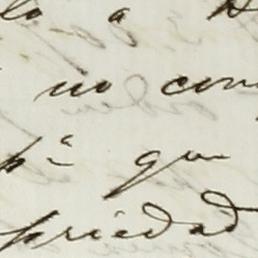 lo a
no con
pª que
priedad